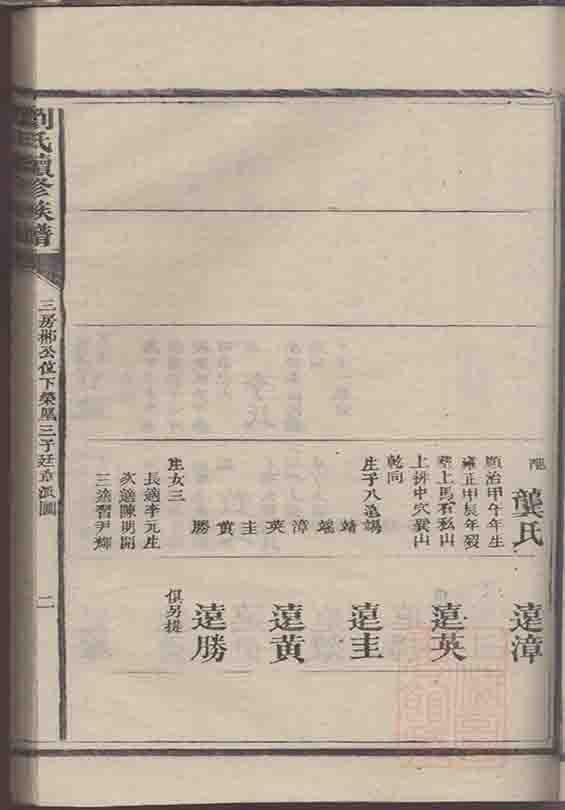 配
龔氏
順治甲午年生
雍正甲辰年歿
葬上馬石私山
上排中穴巽山
乾向
生子八遠錫
靖
端
漳
英
圭
黃
勝
生女三
長適李元生
次適陳明開
三達習尹輝
遠漳
遠英
遠圭
遠黃
遠勝
俱另提
劉氏續修族譜
三房郴公位下榮鳳三子廷章派圖
二